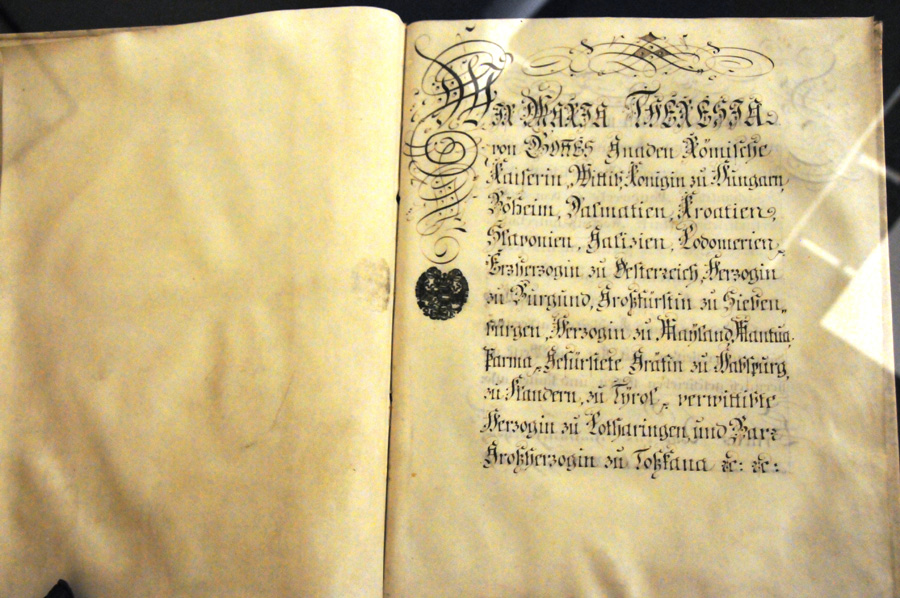 Wir Maria Theresia
von Gottes Gnaden Römische
Kaiserin, Wittib, Königin zu Hungarn,
Böheim, Dalmatien, Kroatien,
Slavonien, Galizien, Lodomerien,
Erzherzogin zu Oesterreich, Herzogin
zu Burgund, Großfürstin zu Sieben„
bürgen, Herzogin zu Mayland, Mantua,
Parma, Gefürstete Gräfin zu Habspurg,
zu Flandern, zu Tyrol, verwittibte
Herzogin zu Lotharingen, und Bar,
Großherzogin zu Toßkana &c: &c: